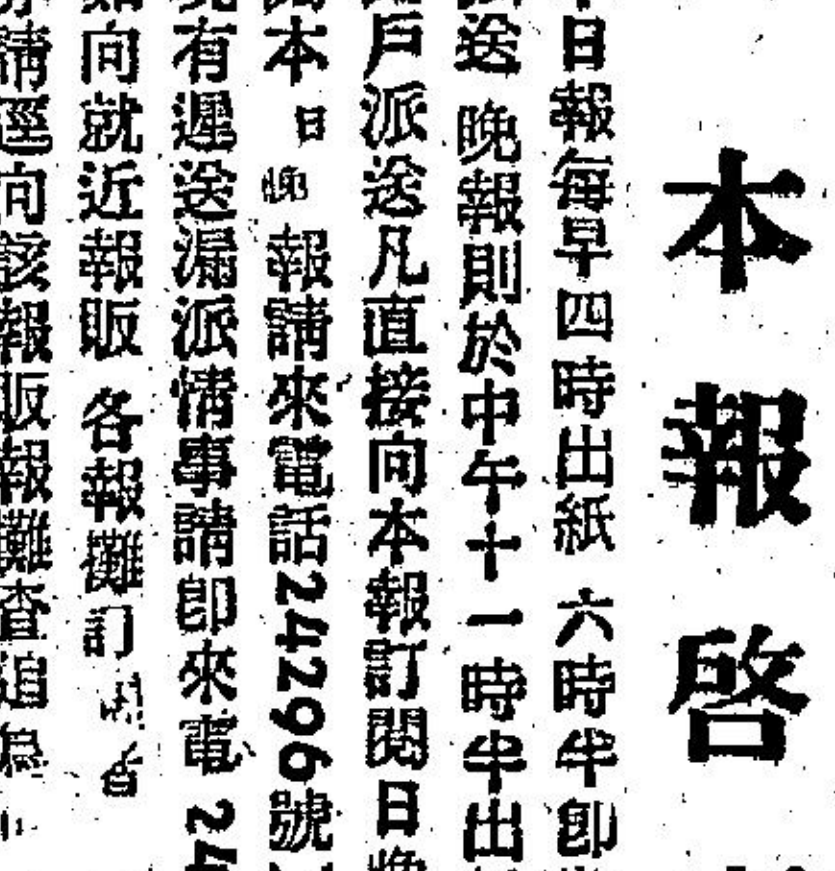 本報啓
日報每早四時出紙 六時半卽
送 晚報則於中午十一時半出
戶派送凡直接向本報訂閱日
本日晚報請來電話24296號
有遲送漏派情事請卽來電 24
向就近報販 各報攤訂閱者
請逕向該報販報攤查追爲